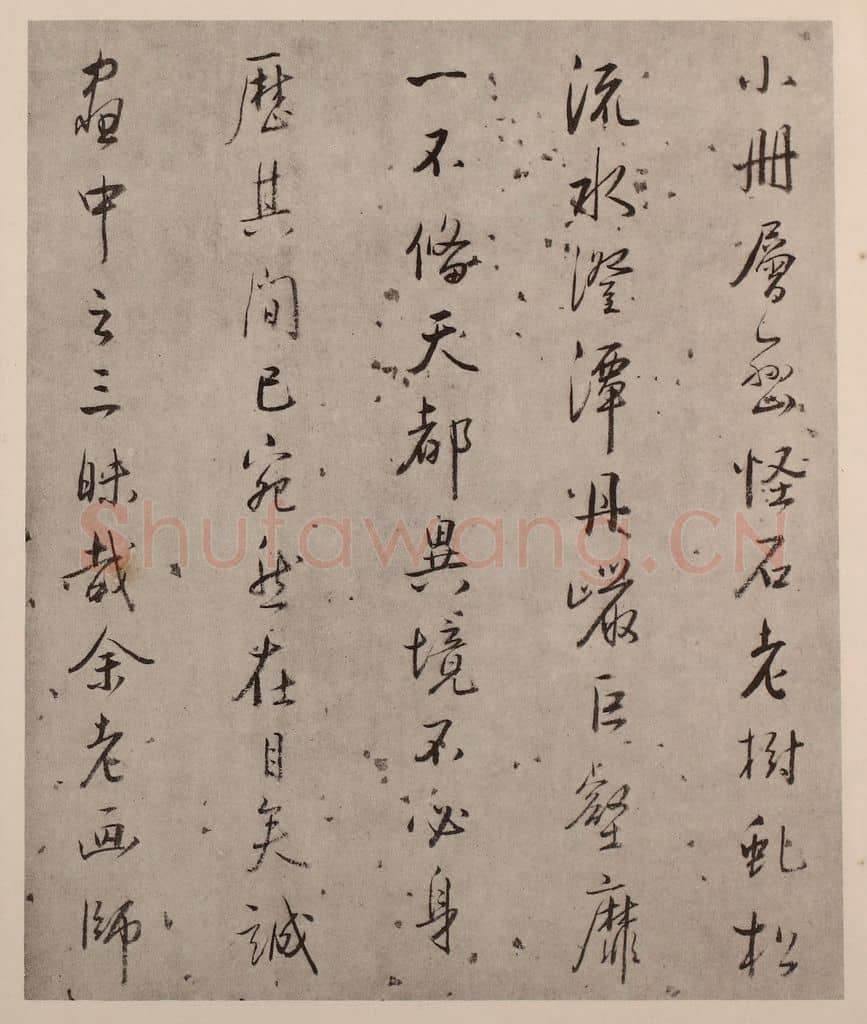 小冊層巒怪石老樹虬松
流水澄潭丹巖巨壑靡
一不備天都異境不必身
歷其間已宛然在目矣誠
畫中之三昧哉余老画師
Shufawang.CN